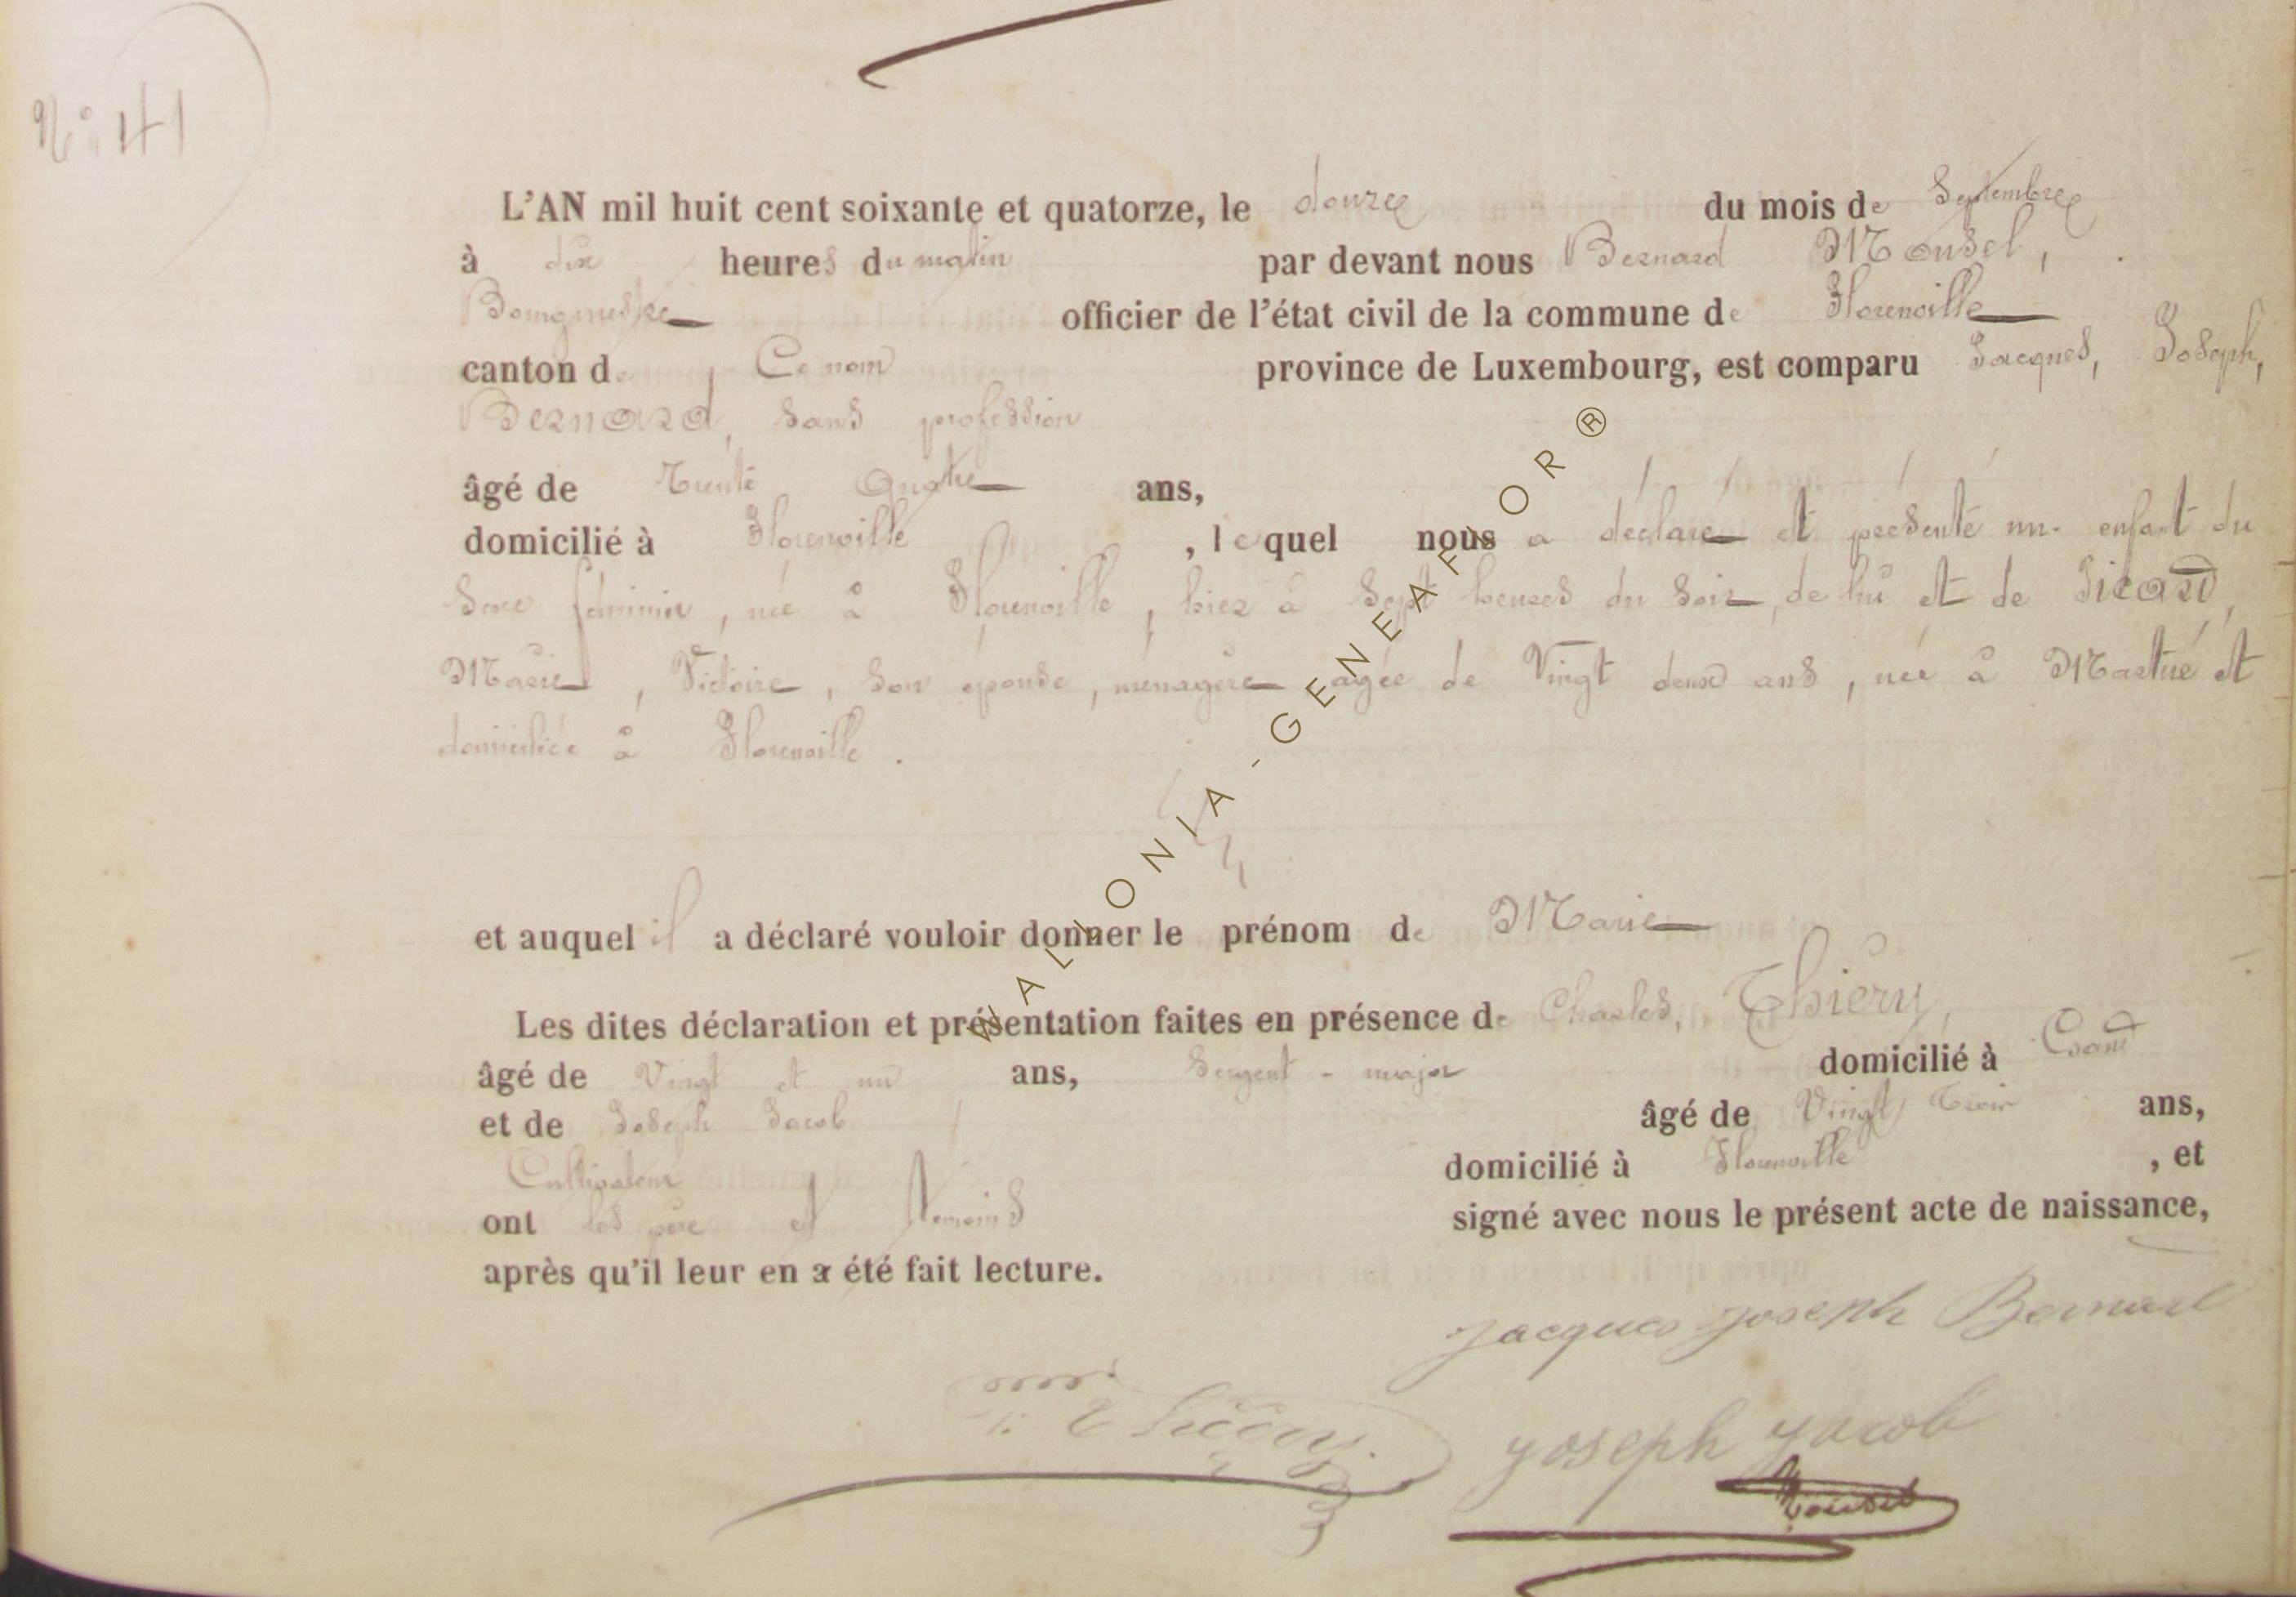 N° 41
L'AN mil huit cent soixante et quatorze, le douze du mois de Septembre
à dix heures du matin par devant nous Bernard Mousel,
Bourgmestre officier de l'état civil de la commune de Florenville
canton de Ce nom province de Luxembourg, est comparu Jacques, Joseph,
Bernard, sans profession
âgé de Trente Quatre ans,
domicilié à Florenville , lequel nous a déclaré et présenté un enfant du
Sexe féminin, née à Florenville, hier à Sept heures du Soir, de lui et de Sicard,
Marie, Victoire, Son épouse, ménagère agée de Vingt deux ans, née à Martué et
domiciliée à Florenville.
et auquel il a déclaré vouloir donner le prénom de Marie
Les dites déclaration et présentation faites en présence de Charles, Thiéry,
âgé de Vingt et un ans, Sergent-major domicilié à Gand
et de Joseph Jacob âgé de Vingt Trois ans,
Cultivateur domicilié à Florenville , et
ont les père et témoins signé avec nous le présent acte de naissance,
après qu'il leur en a été fait lecture.
Jacques Joseph Bernard
Thiéry
Joseph Jacob
Mousel
WALLONIA-GENEAFLOR ®